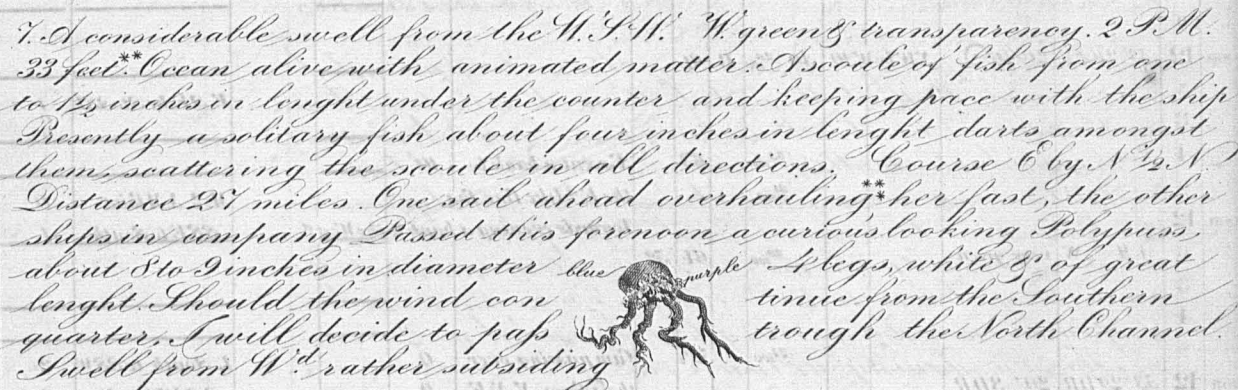 7. A considerable swell from the W.S.W. W. green & transparency. 2 P.M.
33 feet.** Ocean alive with animated matter. A scoule of fish from one
to 1½ inches in lenght under the counter and keeping pace with the ship
Presently a solitary fish about four inches in lenght darts amongst
them, scattering the scoule in all directions. Course E by N ½ N
Distance 27 miles. One sail ahead overhauling ** her fast, the other
ships in company Passed this forenoon a curious looking Polypuss,
about 8 to 9 inches in diameter blue purple 4 legs, white & of great
lenght. Should the wind con tinue from the Southern
quarter, I will decide to pass trough the North Channel.
Swell from W'd rather subsiding